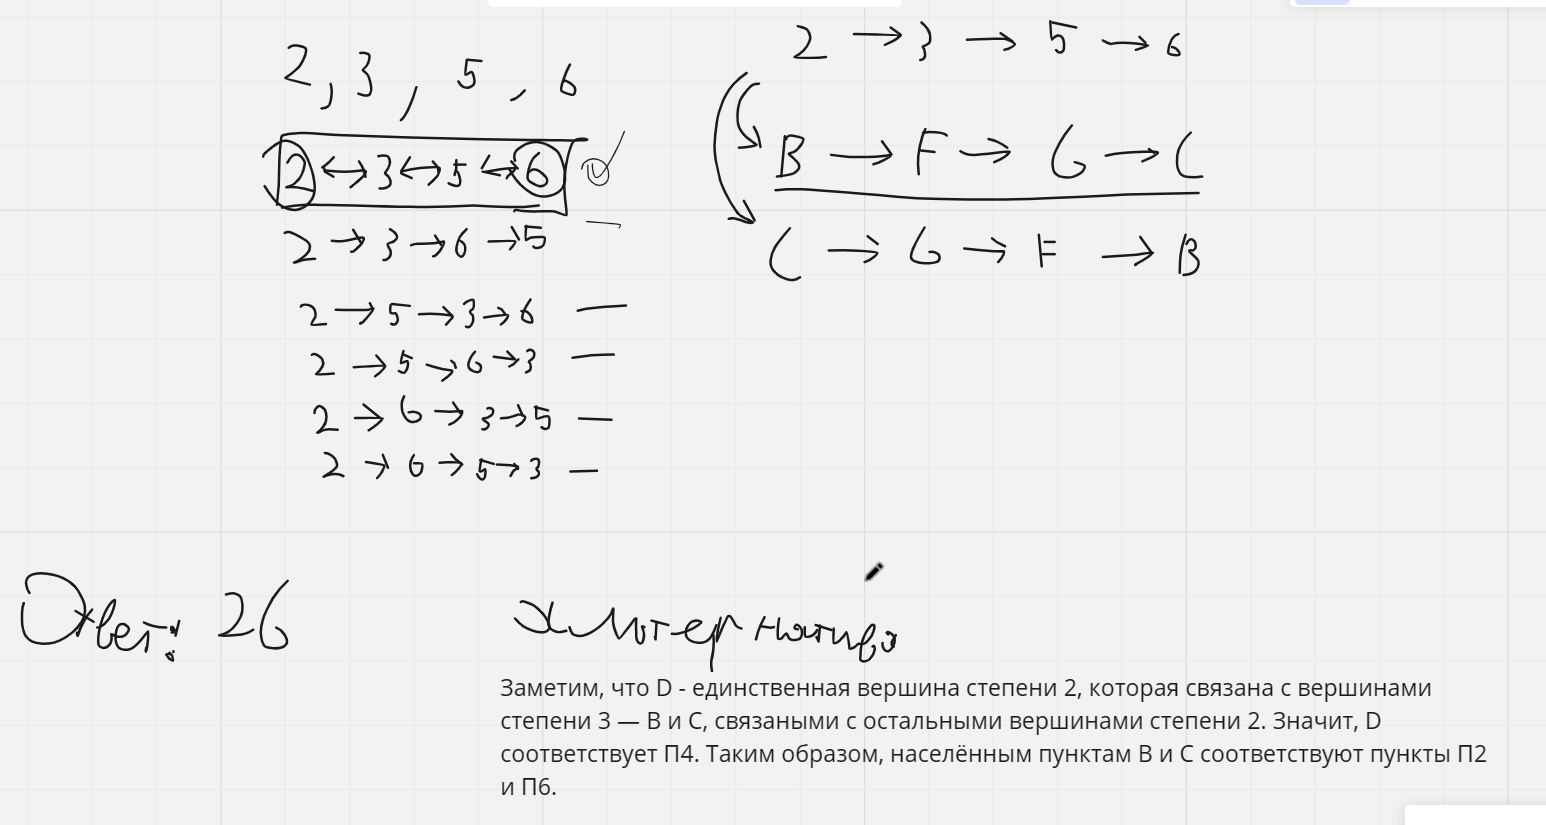 2, 3, 5, 6
2 ↔ 3 ↔ 5 ↔ 6
2 → 3 → 6 → 5 —
2 → 5 → 3 → 6 —
2 → 5 → 6 → 3 —
2 → 6 → 3 → 5 —
2 → 6 → 5 → 3 —
2 → 3 → 5 → 6
B → F → G → C
C → G → F → B
Ответ: 26
Альтернатива
Заметим, что D - единственная вершина степени 2, которая связана с вершинами
степени 3 — B и C, связаными с остальными вершинами степени 2. Значит, D
соответствует П4. Таким образом, населённым пунктам B и C соответствуют пункты П2
и П6.